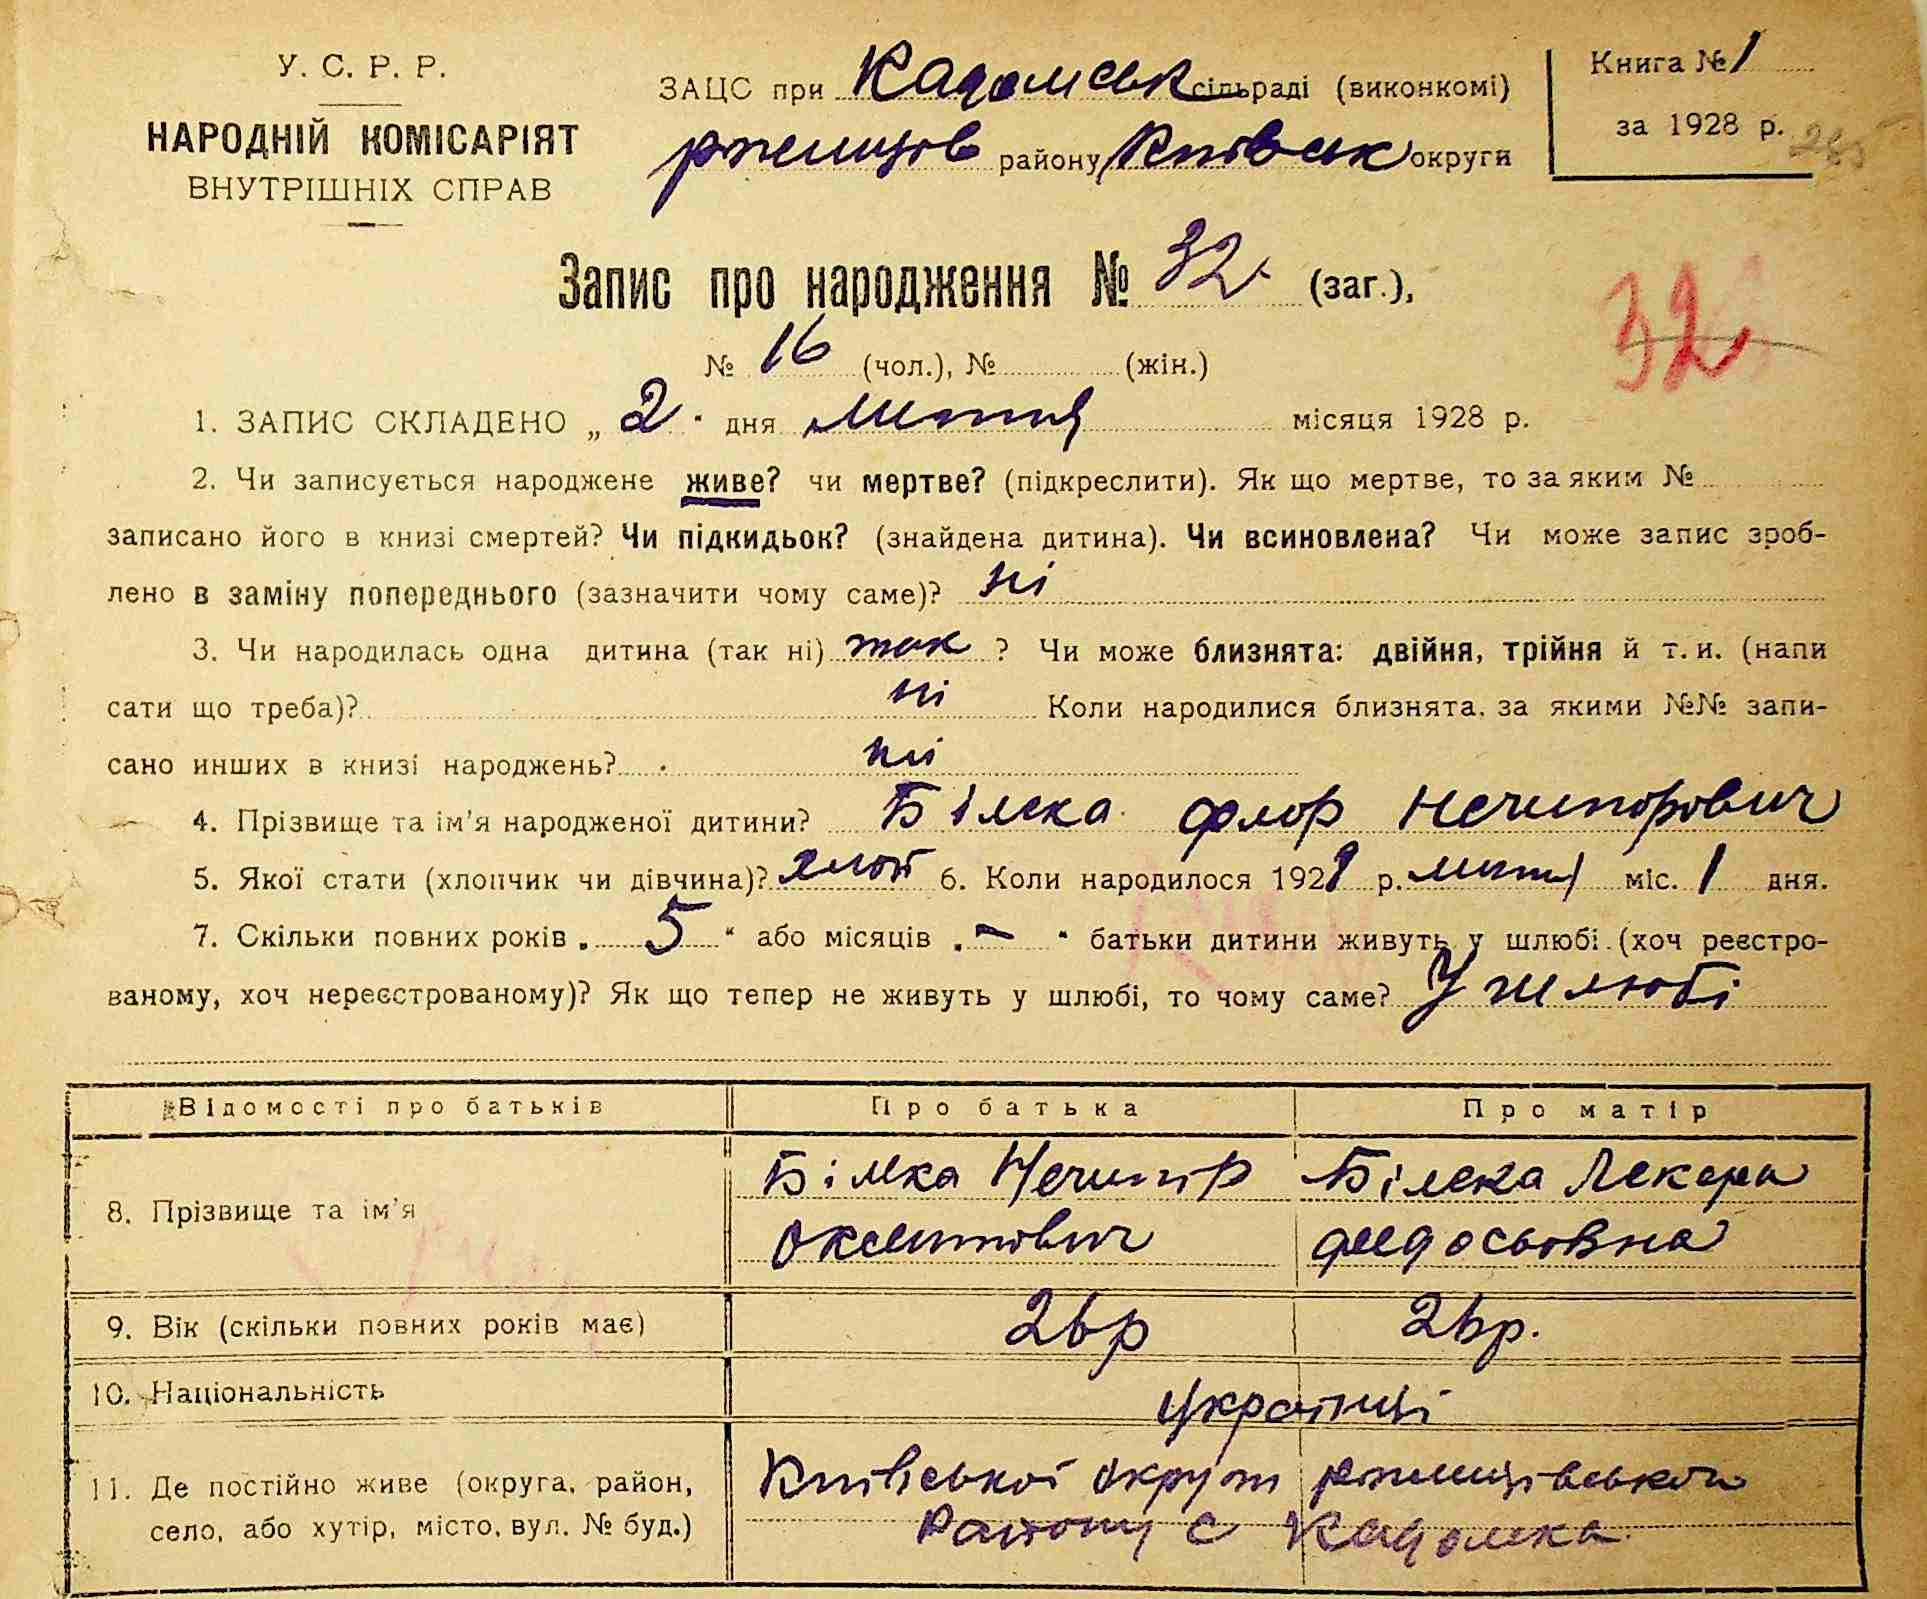 У. С. Р. Р.
НАРОДНІЙ КОМІСАРІЯТ
ВНУТРІШНІХ СПРАВ
ЗАЦС при Кадомськ сільраді (виконкомі)
ржищів району Київськ округи
Книга № 1
за 1928 р.
Запис про народження № 32 (заг.),
32
№ 16 (чол.), № (жін.)
1. ЗАПИС СКЛАДЕНО „ 2 " дня лютня місяця 1928 р.
2. Чи записується народжене живе? чи мертве? (підкреслити). Як що мертве, то за яким №
записано його в книзі смертей? Чи підкидьок? (знайдена дитина). Чи всиновлена? Чи може запис зроб-
лено в заміну попереднього (зазначити чому саме)? ні
3. Чи народилась одна дитина (так ні) так ? Чи може близнята: двійня, трійня й т. и. (напи
сати що треба)? ні Коли народилися близнята, за якими №№ запи-
сано инших в книзі народжень? ні
4. Прізвище та ім'я народженої дитини? Білека Флор Нечипорович
5. Якої стати (хлопчик чи дівчина)? хлоп 6. Коли народилося 1928 р. лютня міс. 1 дня.
7. Скільки повних років „ 5 " або місяців „ – " батьки дитини живуть у шлюбі (хоч реєстро-
ваному, хоч нереєстрованому)? Як що тепер не живуть у шлюбі, то чому саме? У шлюбі
Відомості про батьків Про батька Про матір
8. Прізвище та ім'я Білека Нечипір Білека Лекера
Оксентович Федосьовна
9. Вік (скільки повних років має) 26 р 26 р.
10. Національність українці
11. Де постійно живе (округа, район, Київської округи ржищівського
село, або хутір, місто, вул. № буд.) Району с Кадомка